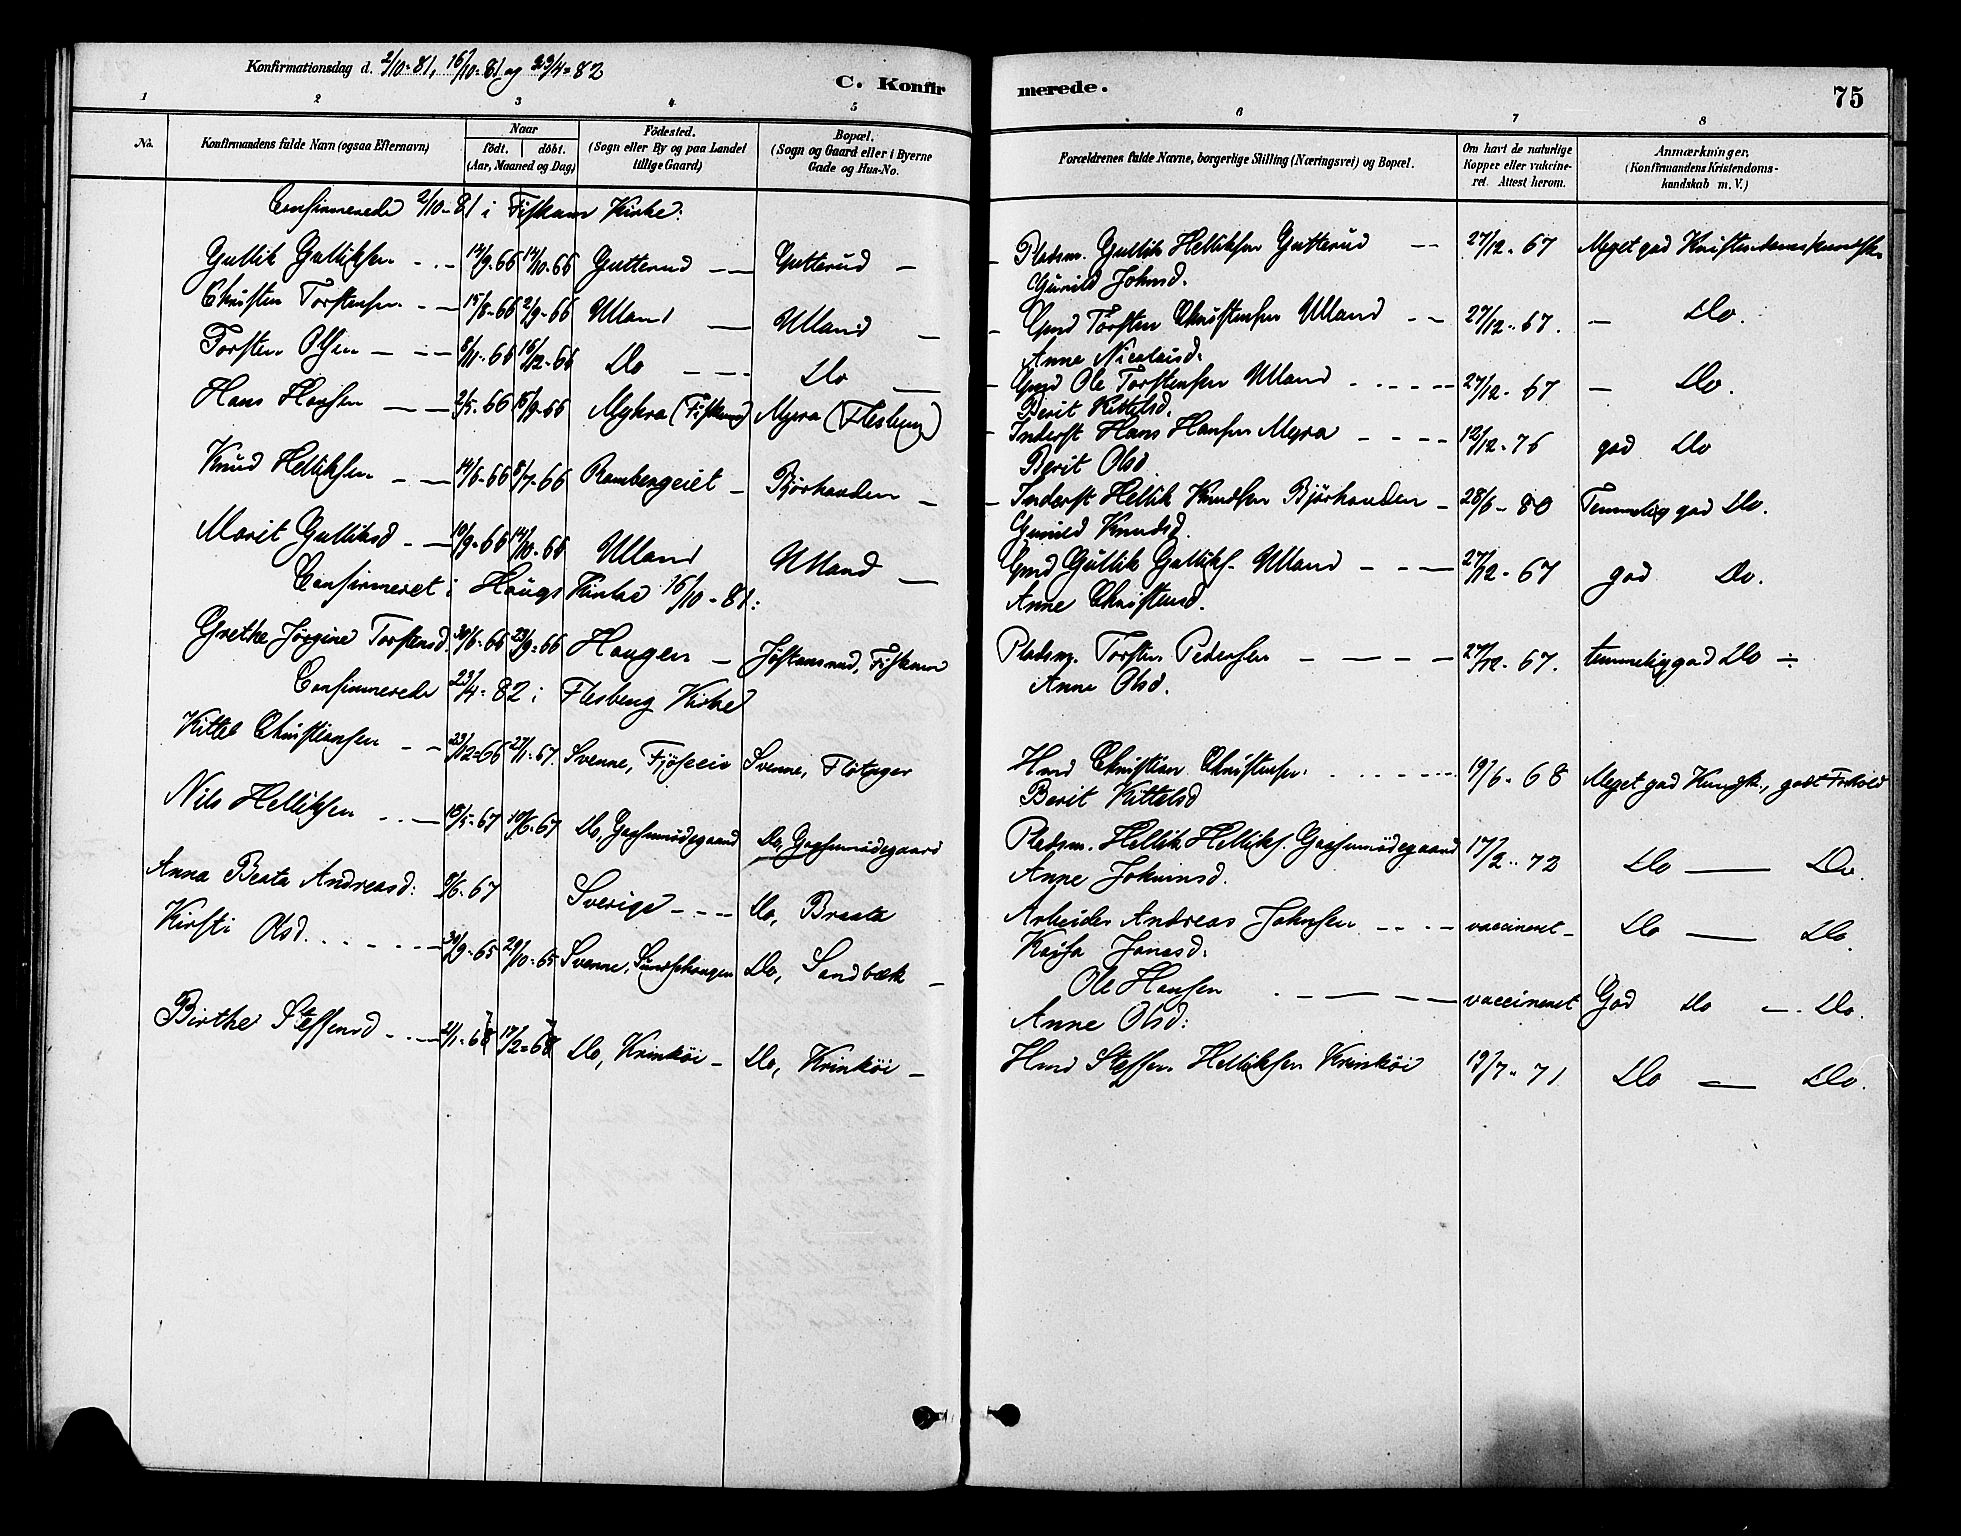 Konfirmationsdag d. 2/10-81, 16/10-81 og 23/4-82
C. Konfirmerede.
75
1 2 3 4 5 6 7 8
No.
Konfirmandens fulde Navn (ogsaa Efternavn)
Naar
födt. döbt.
(Aar, Maaned og Dag)
Födested.
(Sogn eller By og paa Landet
tillige Gaard)
Bopæl.
(Sogn og Gaard eller i Byerne
Gade og Hus-No.
Forældrenes fulde Navne, borgerlige Stilling (Næringsvei) og Bopæl.
Om havt de naturlige
Kopper eller vakcine-
ret. Attest herom.
Anmærkninger.
(Konfirmandens Kristendoms-
kundskab m. V.)
Confirmerede 2/10-81 i Fiskum Kirke:
Gullik Gulliksen 14/9-66 14/10-66 Gutterud Gutterud Pladsm. Gullik Helliksen Gutterud 27/12-67 Meget god Kristendomskundsk.
Gunild Johnsd.
Christen Torstensen 15/8-66 2/9-66 Ulland Ulland Gmd Torsten Christensen Ulland 27/12-67. Do.
Anne Nicolaisd.
Torsten Olsen 8/11-66 16/12-66 Do Do Gmd Ole Torstensen Ulland 27/12-67 Do.
Berit Kittelsd.
Hans Hansen 2/5-66 16/9-66 Myhra (Fiskum) Myra (Flesberg) Inderst Hans Hansen Myra 12/12-76 god Do
Berit Olsd
Knud Helliksen 14/6-66 8/7-66 Rambergeiet Bjørhanden Inderst Hellik Knudsen Bjørhanden 28/6-80 Temmelig god Do.
Gunild Knudsd.
Marit Gulliksd 10/9-66 14/10-66 Ulland Ulland Gmd Gullik Galliks. Ulland 27/12-67 god Do.
Anne Christensd.
Confirmeret i Haugs Kirke 16/10-81:
Grethe Jørgine Torstensd. 30/6-66 23/9-66 Haugen Jøstansrud, Fiskum Pladsm. Torsten Pedersen 27/12-67. temmelig god Do ÷
Anne Olsd.
Confirmerede 23/4-82 i Flesberg Kirke
Kittel Christiansen 23/12-66 27/1-67. Svenne, Fjøseie Svenne, Flötager Hmd Christian Christensen 19/6-68 Meget god Kundsk., godt Forhold
Berit Kittelsd
Nils Helliksen 18/5-67 10/6-67 Do, Gaasemødegaard Do, Gaasemødegaard Pladsm. Hellik Helliks. Gaasemødegaard 17/2-72 Do Do.
Anne Johannsd.
Anna Beata Andreasd: 8/6-67 Sverige Do, Braata Arbeider Andreas Johnsen vaccineret Do Do.
Kajsa Jonasd.
Kirsti Olsd. 30/9-65 29/10-65 Svenne, Sundsehaugen Do, Sandbæk Ole Hansen vaccineret God Do Do.
Anne Olsd:
Birthe Steffensd 2/1-67 17/2-67 Do, Krinköi Do, Krinköi Hmd Steffen Helliksen Krinköi 19/7-71 Do Do.